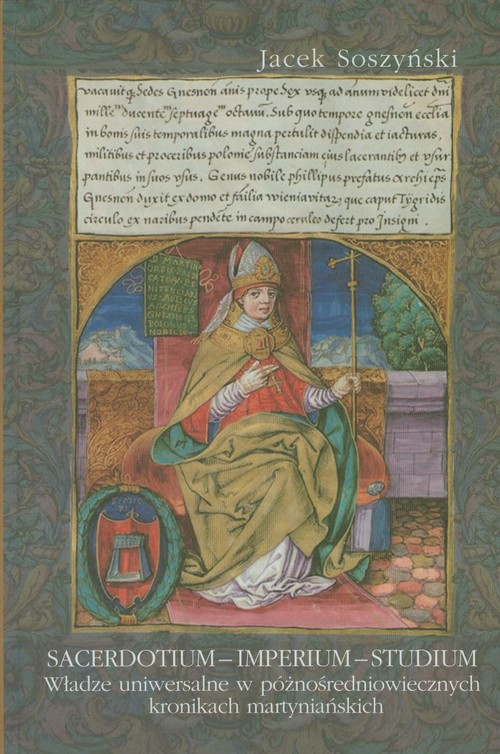 Jacek Soszyński
vacavitq; Sedes Gnesnen̄ ānis prope Sex vsq; ad anum videlicet dn̄i
mille^mo ducente^mo septuage^mo octauū. Sub quo tempore gnesnen̄ ecclīa
in bonis suis temporalibus magna pertulit dispendia et iacturas,
militibus et proceribus polonie substanciam eius lacerantib; et vsur
pantibus in suos vsus. Genus nobile phillipus prefatus archiep̄s
Gnesnen̄ duxit ex domo et failia wieniavitar; que caput Tygridis
circulo ex naribus pendēte in campo ceruleo defert pro Insigni.
D MARTIN
ORDIS PRE
SACERDOTIUM – IMPERIUM – STUDIUM
Władze uniwersalne w późnośredniowiecznych
kronikach martyniańskich